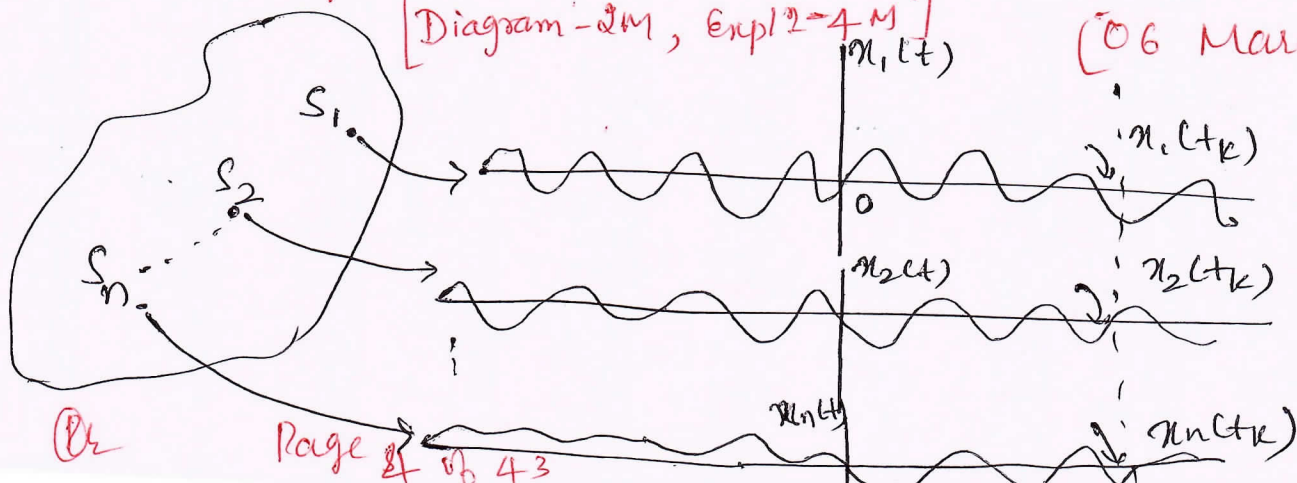 [Diagram-2M, Expl2-4M]
(06 Mar
x₁(t)
S₁
x₁(tₖ)
0
S₂
x₂(t)
x₂(tₖ)
Sₙ
xₙ(t)
xₙ(tₖ)
Page of 43